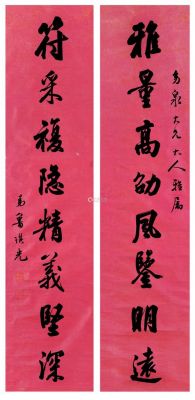 少泉大兄大人雅屬
雅量高劭風鑒明遠
符采複隱精義堅深
弟魯琪光